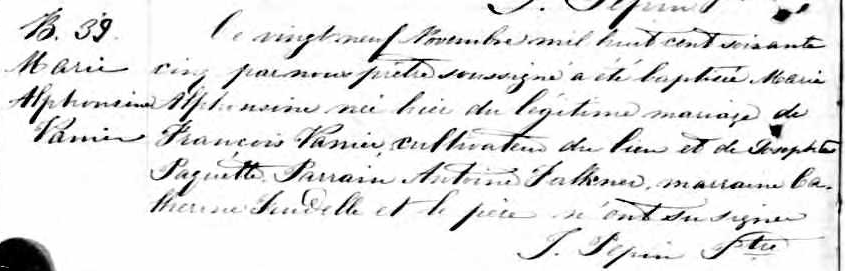 J. Pepin Ptre
B. 39.
Marie
Alphonsine
Vanier
Le vingt neuf Novembre mil huit cent soixante
cinq par nous prêtre soussigné a été baptisée Marie
Alphonsine née hier du légitime mariage de
François Vanier, cultivateur du lieu et de Josephte
Paquétte. Parrain Antoine Falkner, marraine Ca-
therine et le père n'ont su signer
J. Pepin Ptre